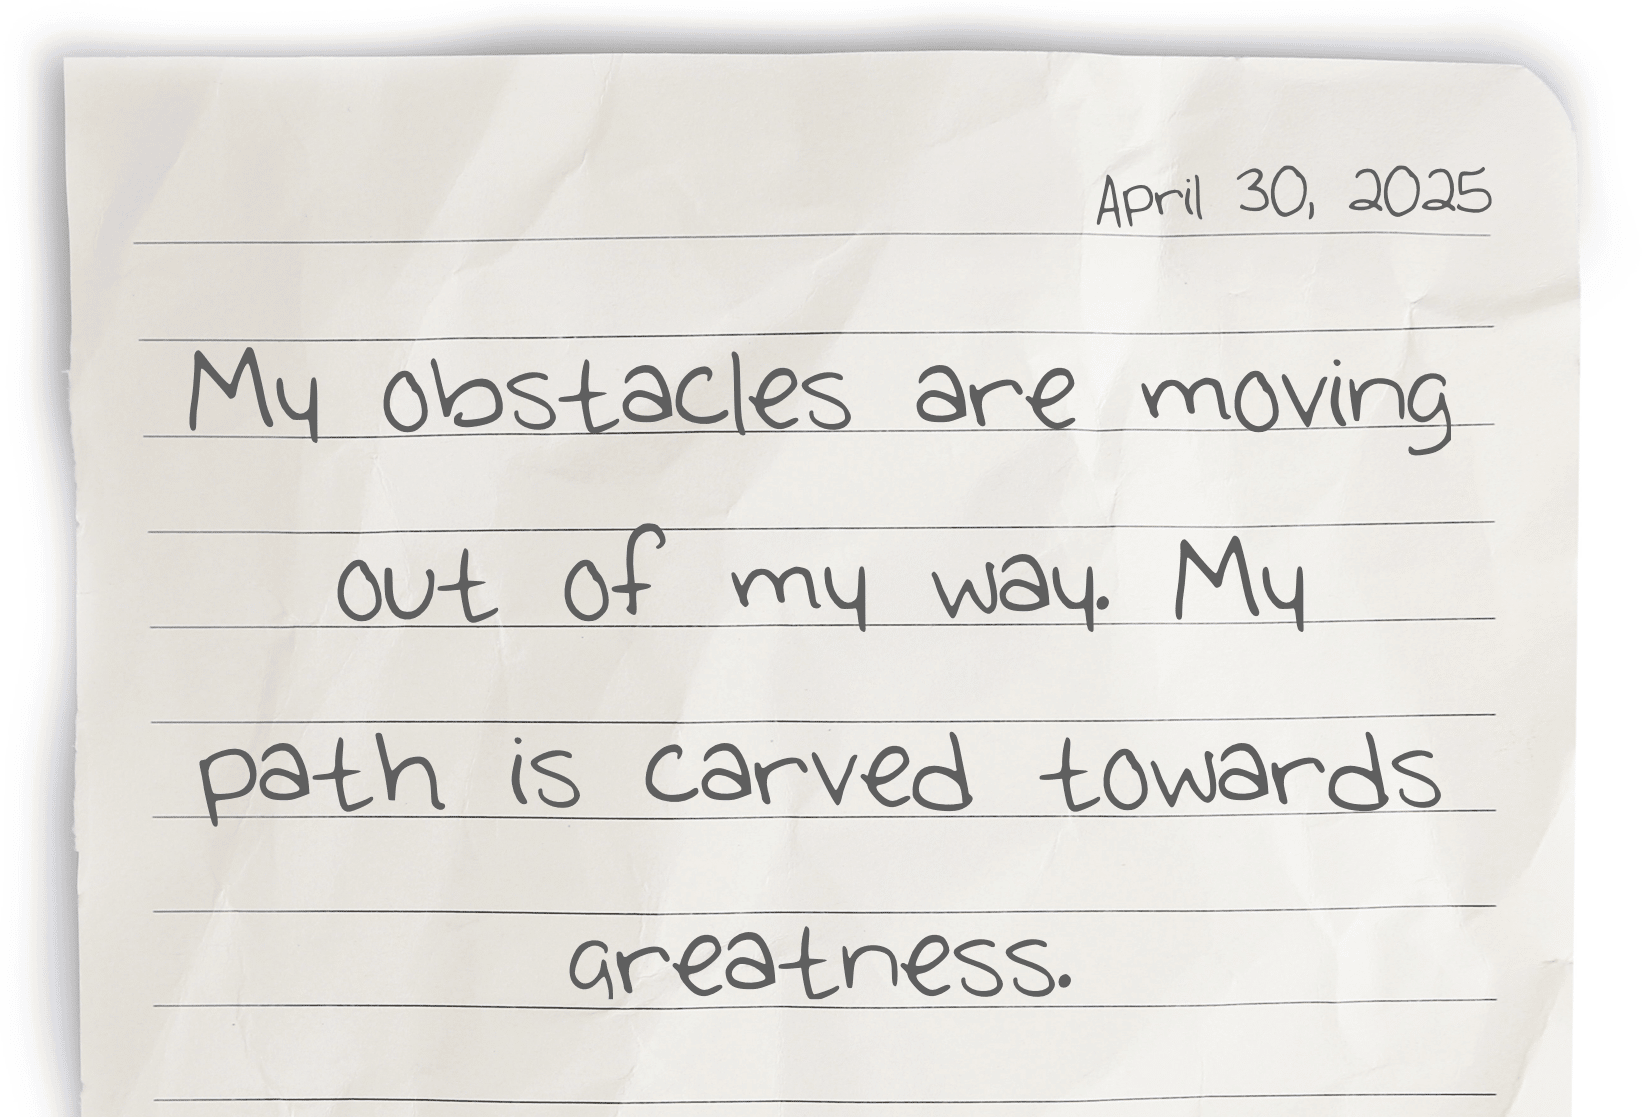 April 30, 2025
My obstacles are moving
out of my way. My
path is carved towards
greatness.